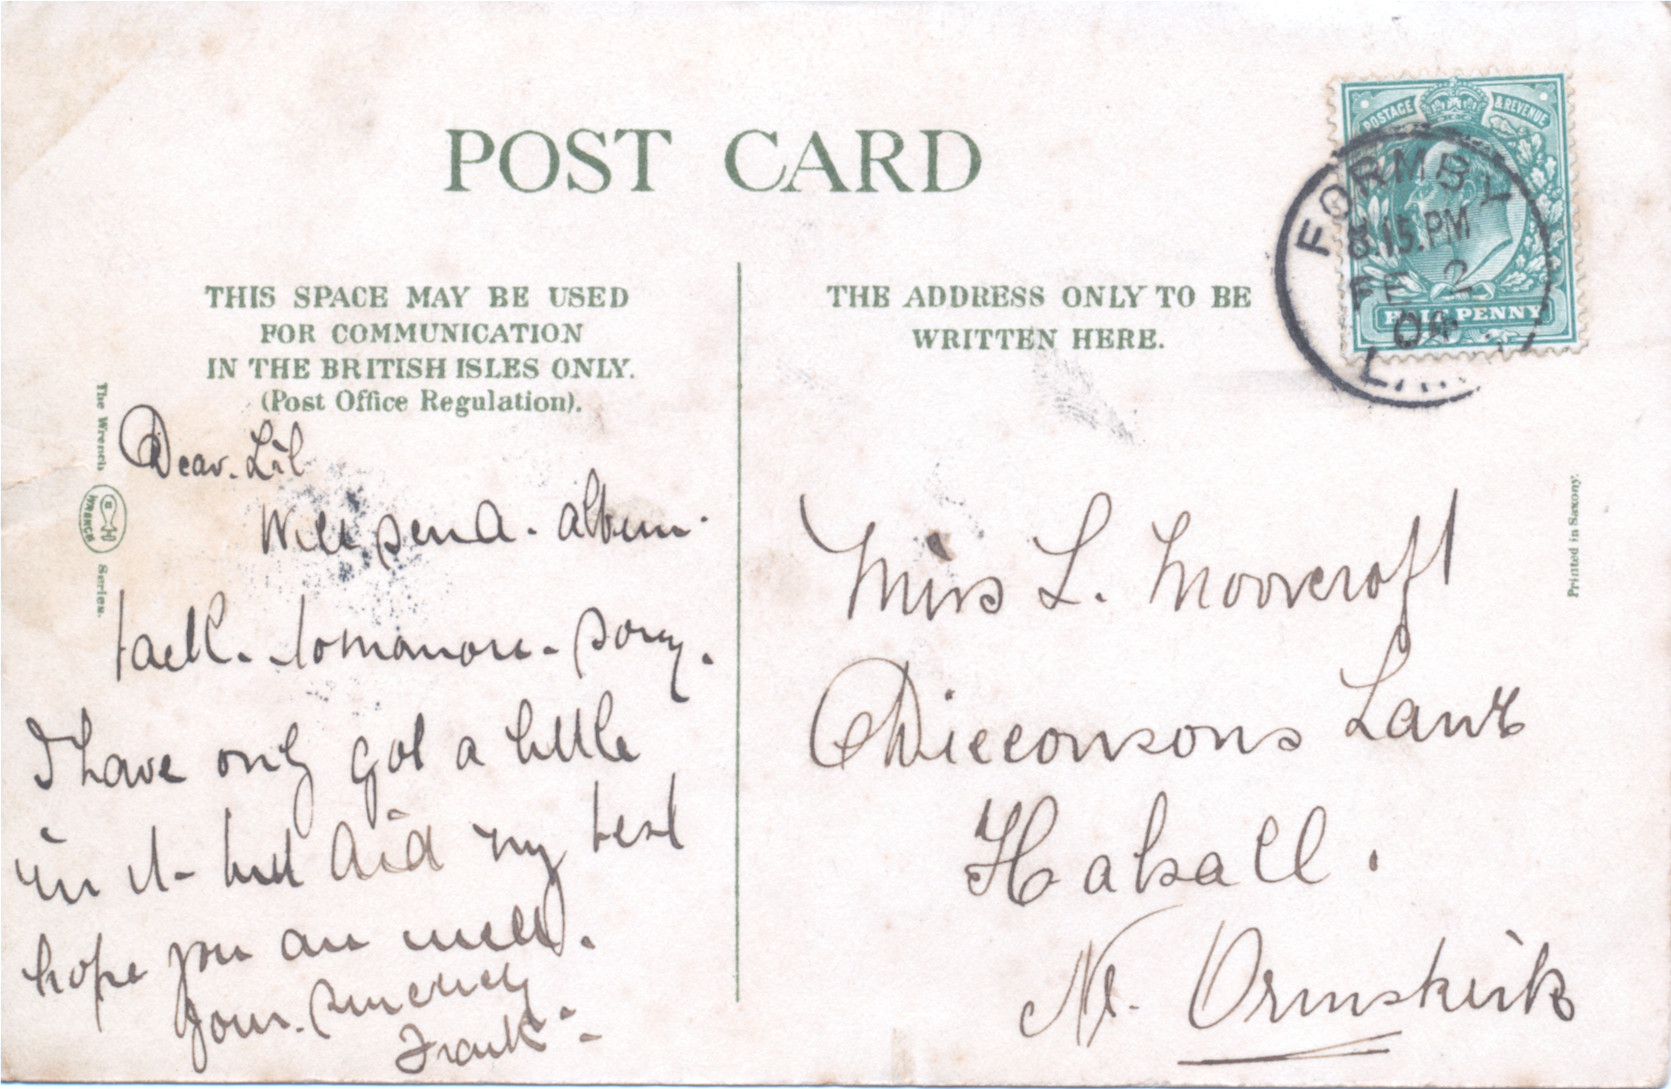 POST CARD
THIS SPACE MAY BE USED
FOR COMMUNICATION
IN THE BRITISH ISLES ONLY.
(Post Office Regulation).
The Wrench
WRENCH
Series.
Dear. Lil
Will send. album.
back. tomorrow. sorry.
I have only got a little
in it - but did my best
hope you are well.
Yours. sincerely
Frank
THE ADDRESS ONLY TO BE
WRITTEN HERE.
POSTAGE & REVENUE
HALF PENNY
FORMBY
8.15.PM
FE 2
Miss L. Moorcroft
Dicconsons Lane
Halsall.
Nr. Ormskirk
Printed in Saxony.